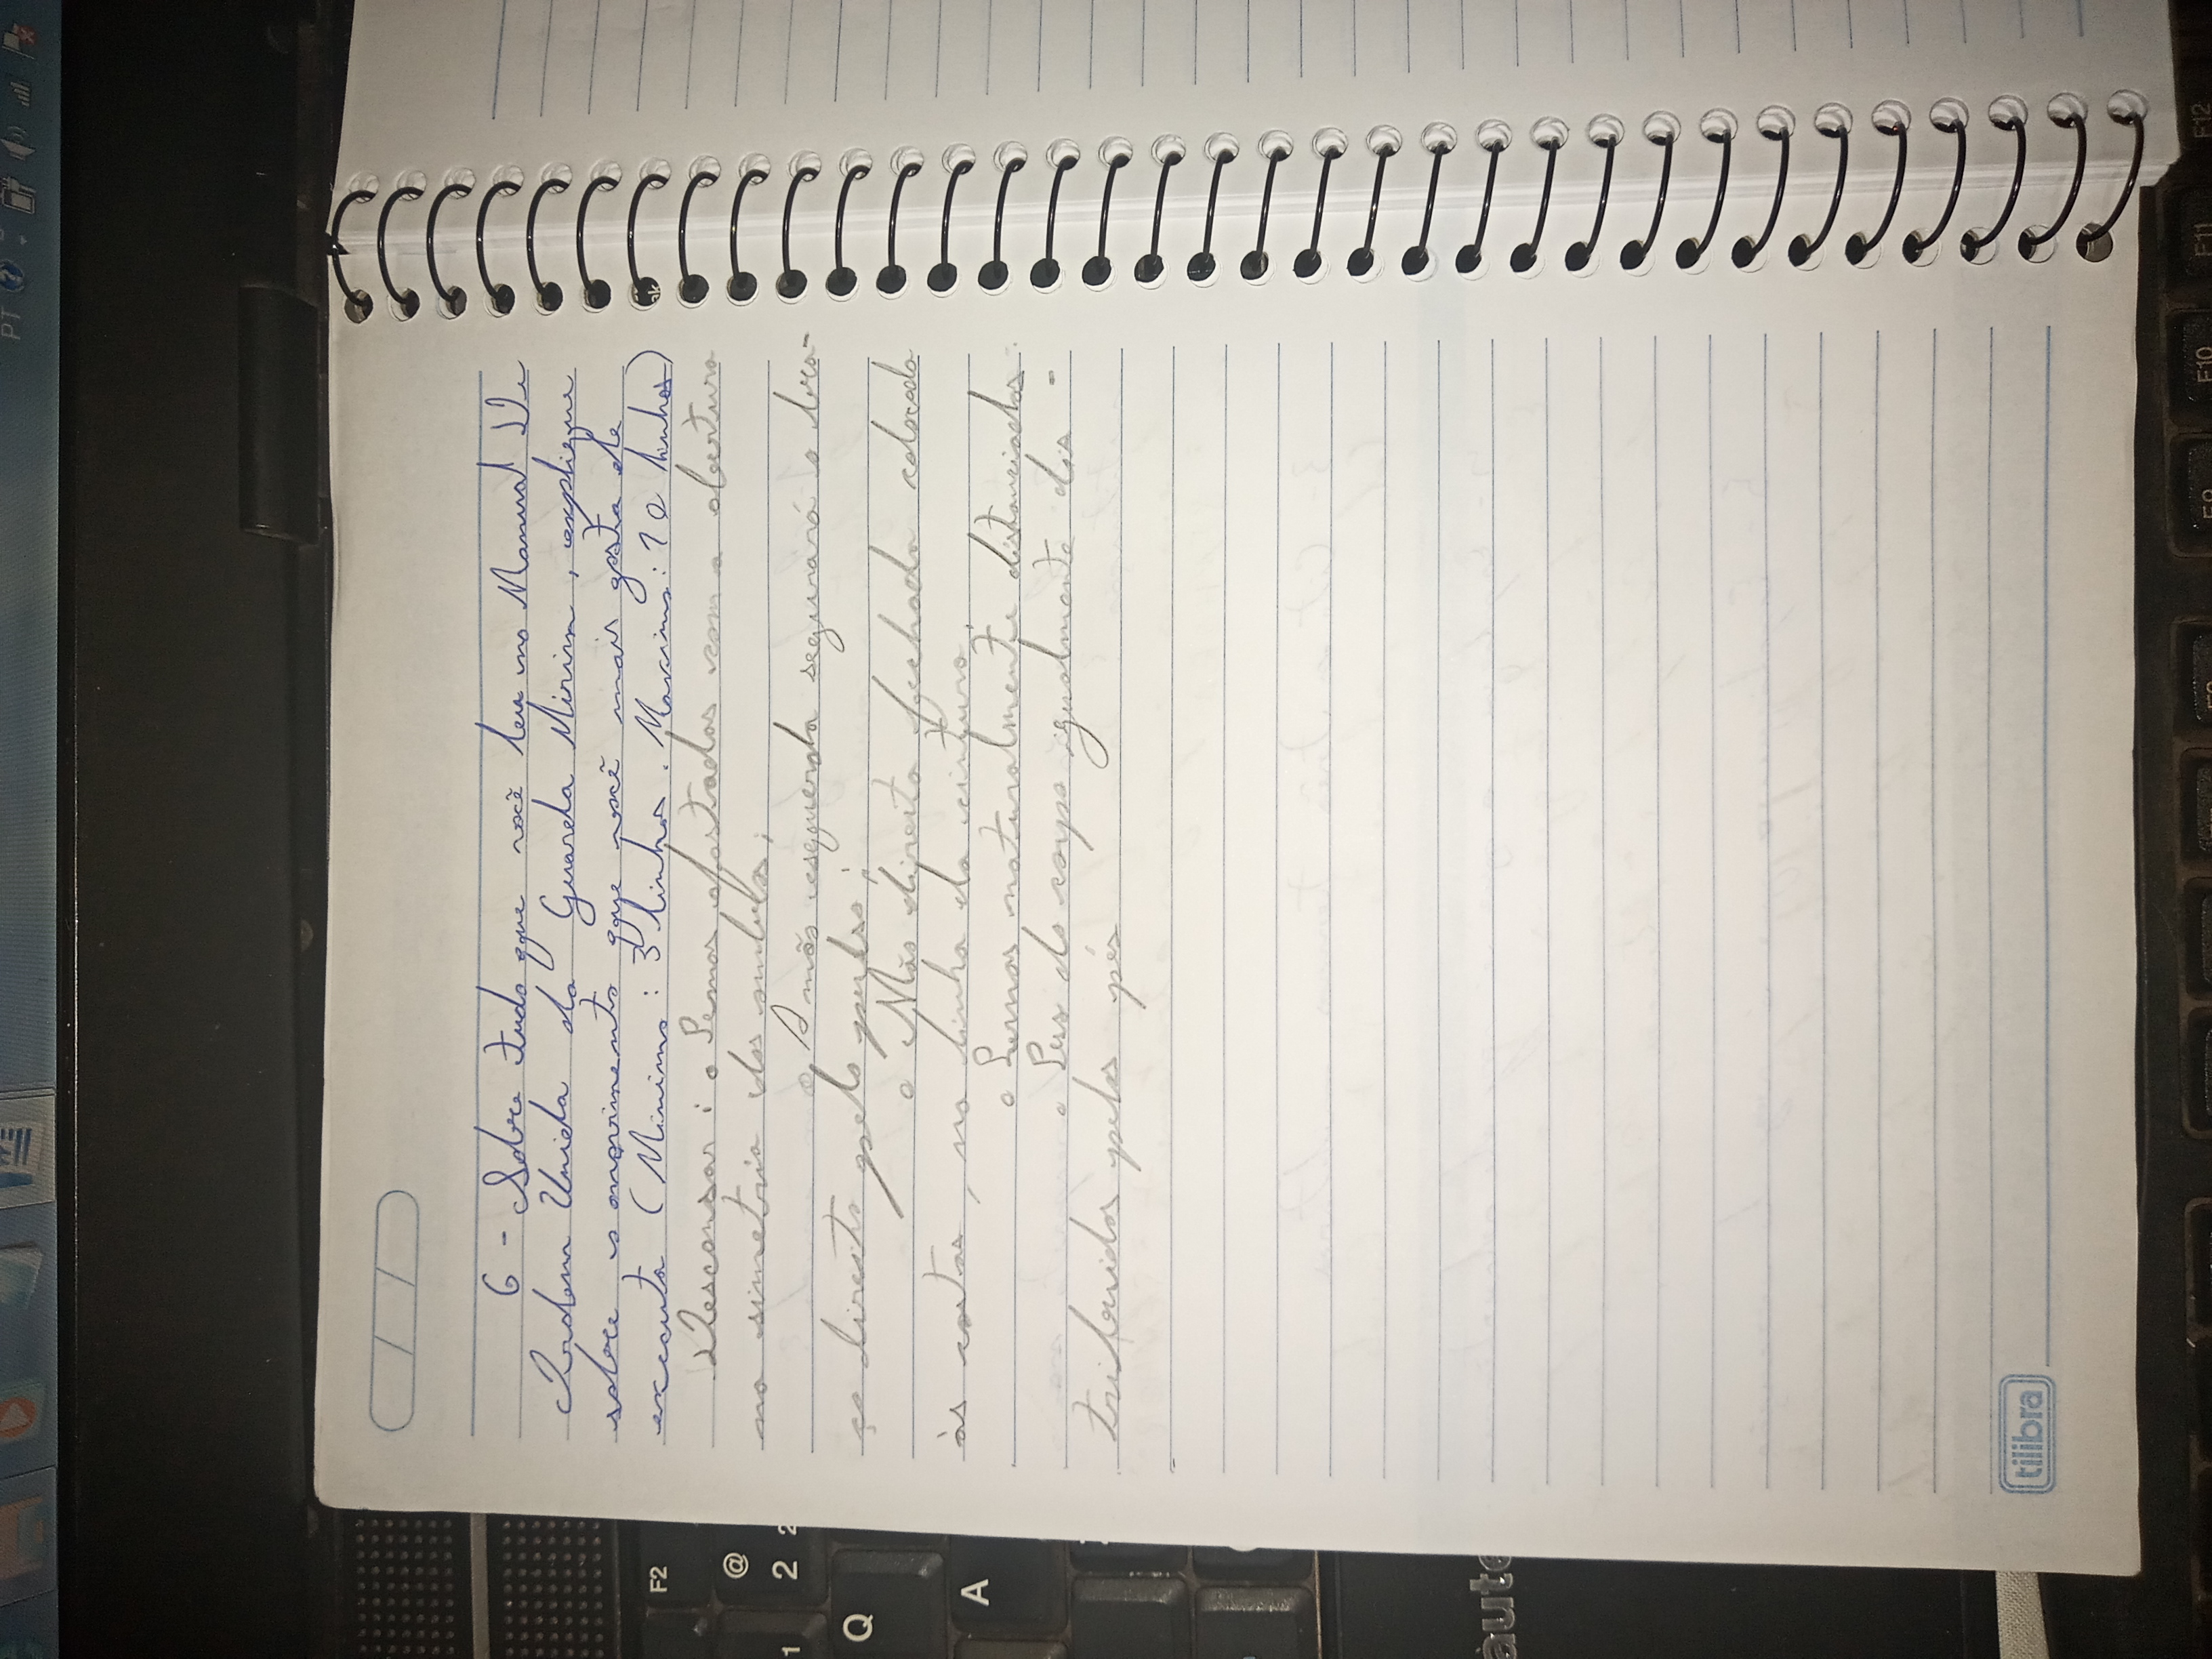 PT
6 - Sobre tudo que você leu no Manual De
Ordem Unida da Guarda Mirim, explique
sobre o movimento que você mais gosta de
executa (Minimo: 3 linhas. Maximo: 10 linhas)
Descansar: o Pernas afastadas com a abertura
na simetria dos ombros;
o A mão esquerda segurará o bra-
ço direito pelo pulso;
o Mão direita fechada colocada
às costas, na linha da cintura.
o Pernas naturalmente distanciadas.
o Peso do corpo igualmente dis -
tribuidos pelos pés
tilibra
F2
@
2
1
Q
A
aute
F9
F10
F11
F12